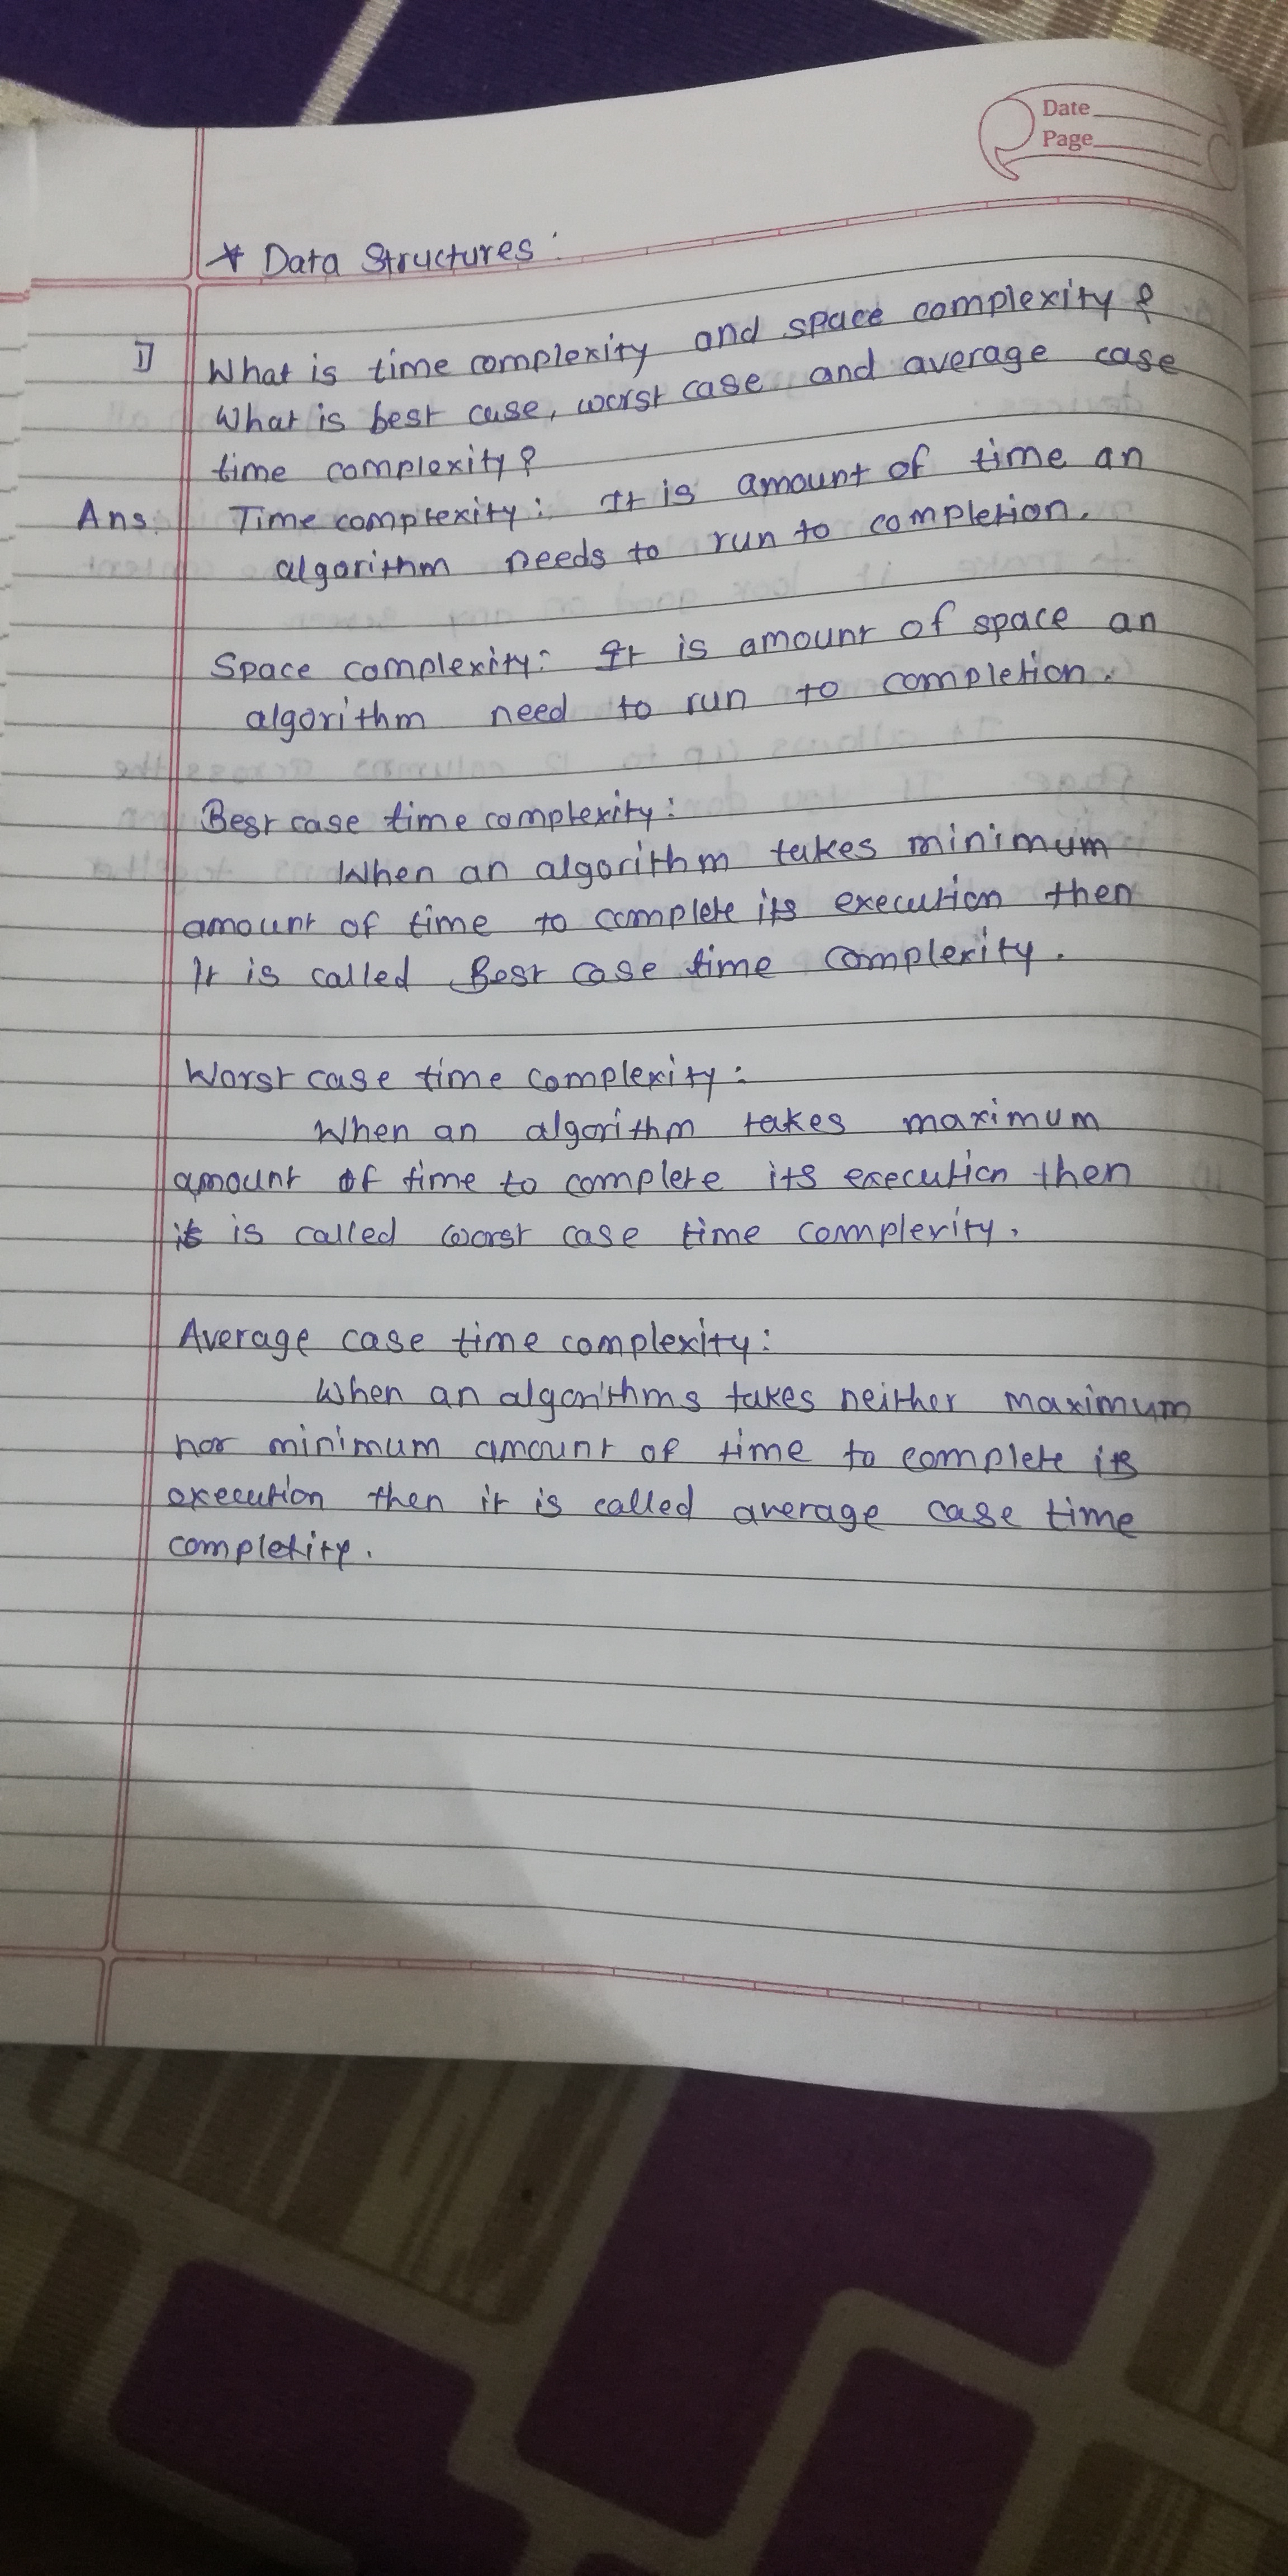 Date
Page
* Data Structures:
1] What is time complexity and space complexity?
What is best case, worst case and average case
time complexity?
Ans. Time complexity: It is amount of time an
algorithm needs to run to completion.
Space complexity: It is amount of space an
algorithm need to run to completion.
Best case time complexity:
When an algorithm takes minimum
amount of time to complete its execution then
It is called Best case time complexity.
Worst case time complexity:
When an algorithm takes maximum
amount of time to complete its execution then
it is called worst case time complexity.
Average case time complexity:
When an algorithms takes neither maximum
nor minimum amount of time to complete its
execution then it is called average case time
complexity.